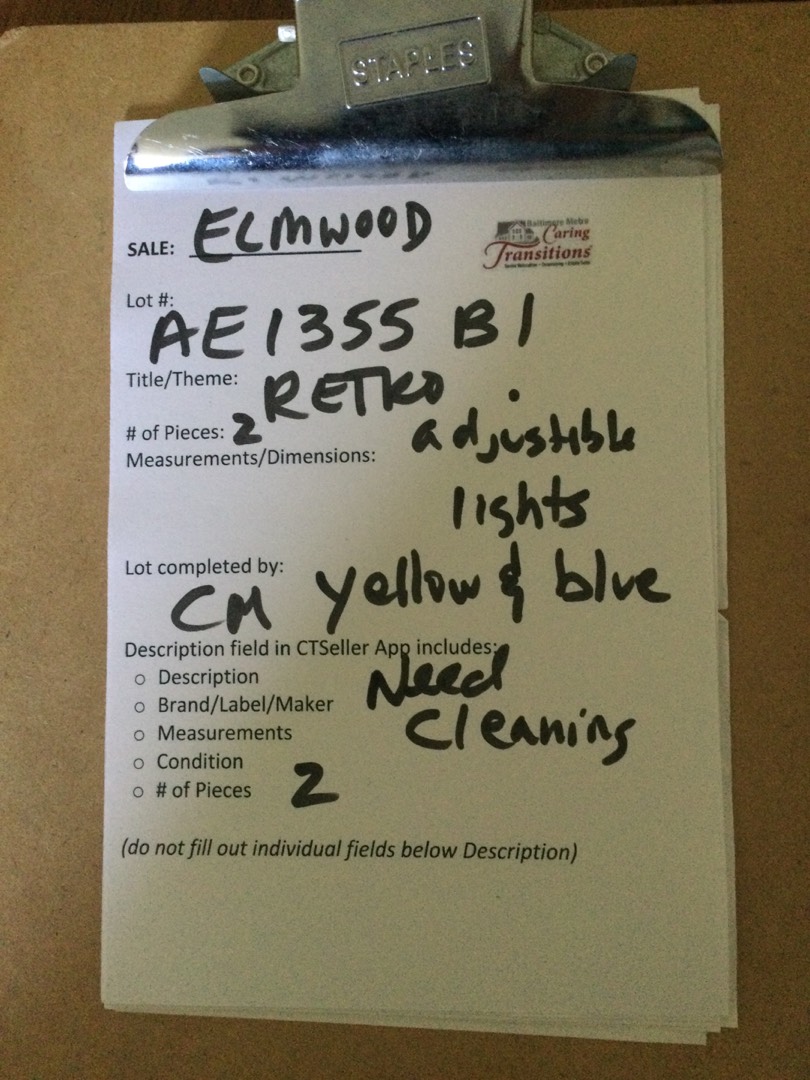 STAPLES
SALE: ELMWOOD
Baltimore Metro
Caring
Transitions
Lot #:
AE1355 B1
Title/Theme: RETRO
# of Pieces: 2 adjustible
Measurements/Dimensions:
lights
Lot completed by:
CM yellow & blue
Description field in CTSeller App includes:
○ Description Need
○ Brand/Label/Maker
○ Measurements Cleaning
○ Condition
○ # of Pieces 2
(do not fill out individual fields below Description)